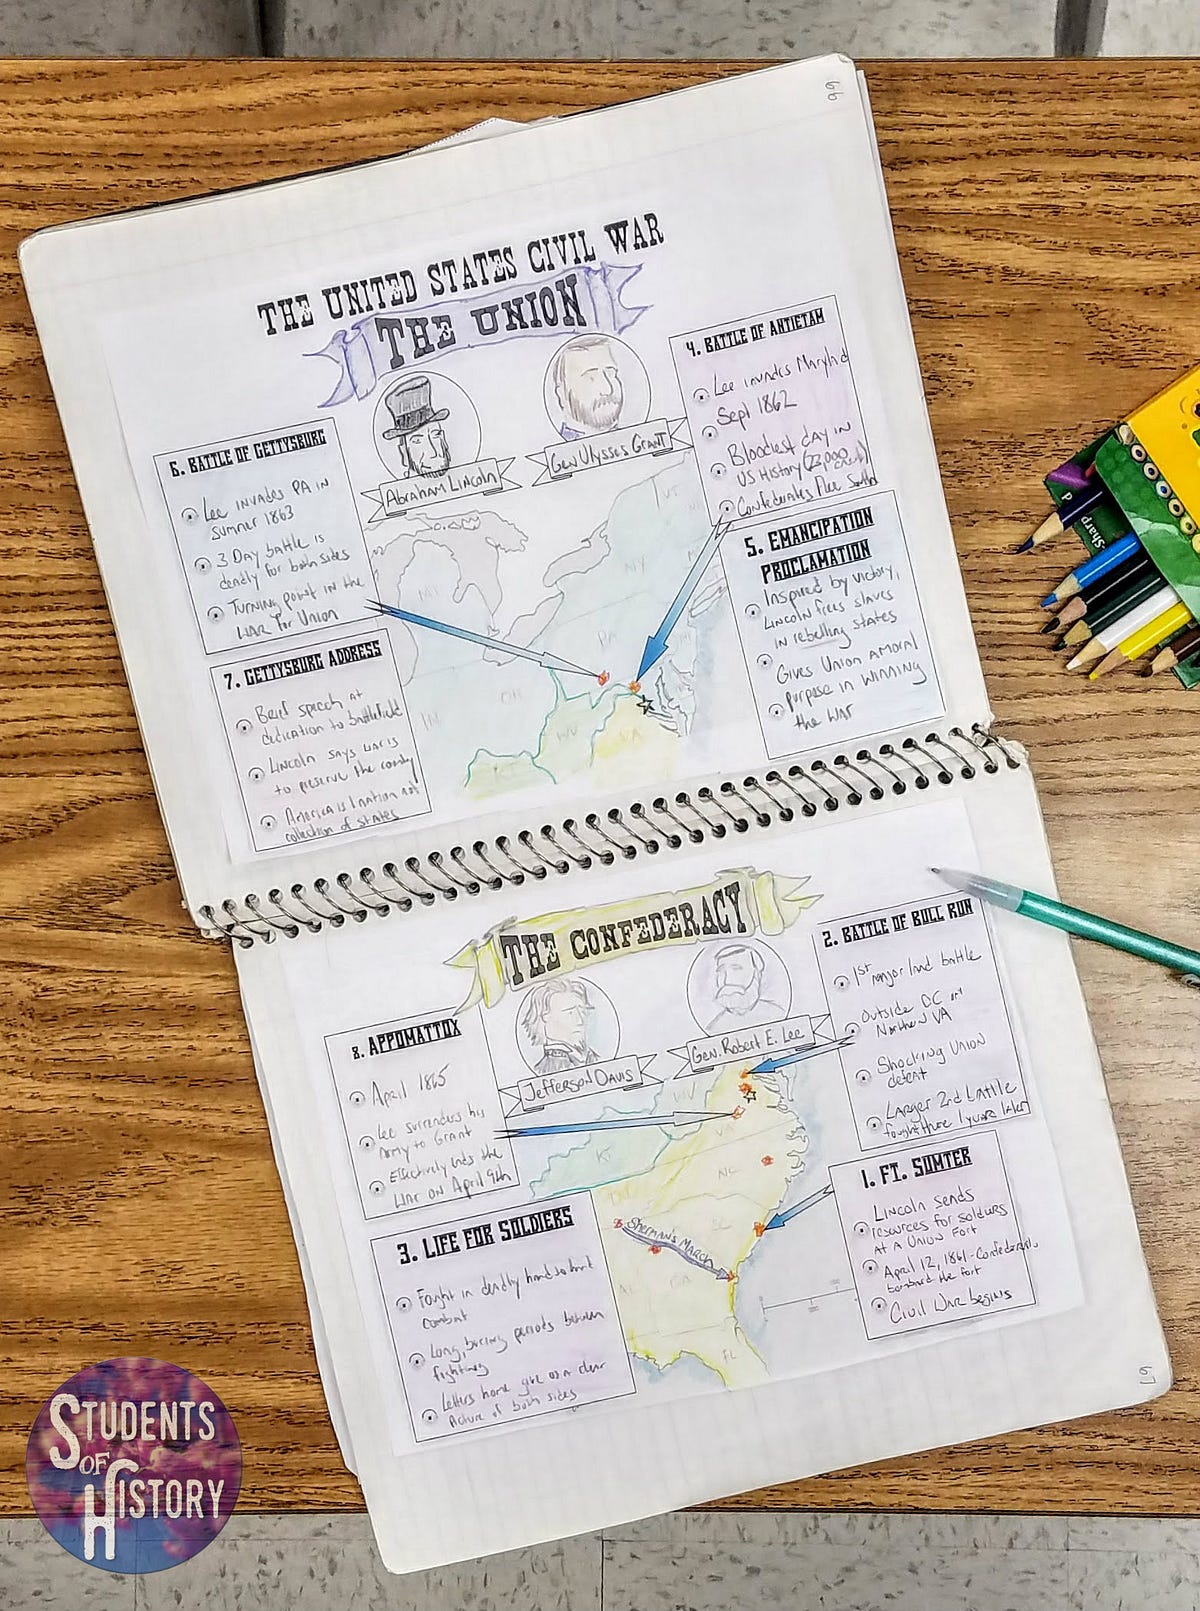 THE UNITED STATES CIVIL WAR
THE UNION
Abraham Lincoln
Gen Ulysses Grant
6. BATTLE OF GETTYSBURG
Lee invades PA in
summer 1863
3 Day battle is
deadly for both sides
Turning point in the
WAR for Union
7. GETTYSBURG ADDRESS
Brief speech at
dedication to battlefield
Lincoln says war is
to preserve the country
America is 1 nation not
collection of states
4. BATTLE OF ANTIETAM
Lee invades Maryland
Sept 1862
Bloodiest day in
US History (23,000
Confederates flee South
5. EMANCIPATION
PROCLAMATION
Inspired by victory,
Lincoln frees slaves
in rebelling states
Gives Union A moral
purpose in winning
the war
VT
NY
MI
PA
OH
IN
WV
VA
THE CONFEDERACY
Jefferson Davis
Gen. Robert E. Lee
8. APPOMATTOX
April 1865
Lee surrenders his
Army to Grant
Effectively ends the
war on April 9th
3. LIFE FOR SOLDIERS
Fought in deadly hand to hand
combat
Long, boring periods between
fighting
Letters home give us a clear
picture of both sides
2. BATTLE OF BULL RUN
1st major land battle
outside DC in
Northern VA
Shocking Union
defeat
Larger 2nd battle
fought there 1 year later
1. FT. SUMTER
Lincoln sends
resources for soldiers
at a Union Fort
April 12, 1861 - Confederates
bombard the fort
Civil War begins
WV
VA
KY
NC
SC
Sherman's March
AL
GA
FL
Sharp
STUDENTS
OF
HISTORY